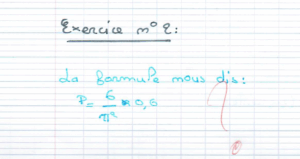 Exercice n° 2:
La formule nous dis:
P = 6/π² ≈ 0,6